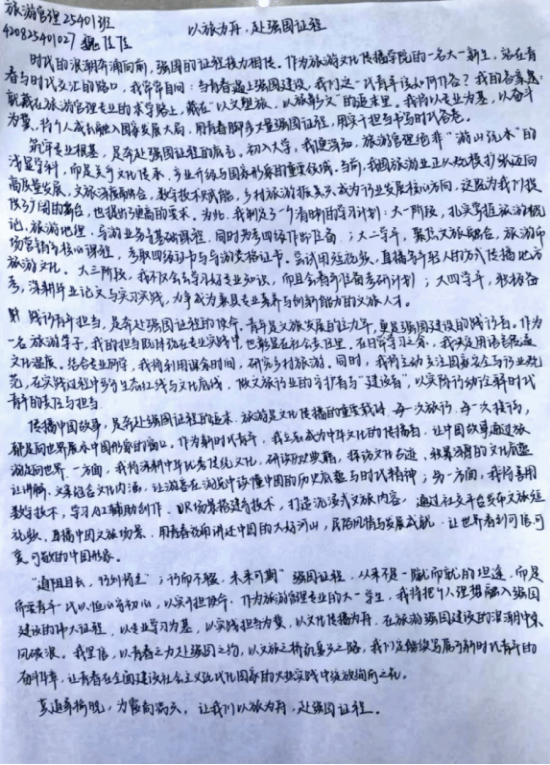 旅游管理25401班
420825401027 魏佳佳
以旅为舟，赴强国征程
时代的浪潮奔涌向前，强国的征程接力相传。作为旅游文化传播学院的一名大一新生，站在青
春与时代交汇的路口，我常常自问：与青春遇上强国建设，我们这一代青年该如何作答？我的答案是：
就藏在旅游管理专业的求学路上，藏在"以文塑旅，以旅彰文"的追求里。我将以专业为基，以奋斗
为桨，将个人成长融入国家发展大局，用青春脚步丈量强国征程，用实干担当书写时代答卷。
筑牢专业根基，是奔赴强国征程的底色。初入大学，我便深知，旅游管理绝非"游山玩水"的
浅显学科，而是关乎文化传承、产业升级与国家形象的重要领域。当前，我国旅游业正从规模扩张迈向
高质量发展，文旅深度融合，数字技术赋能，乡村旅游振兴成为行业发展核心方向，这既为我们提
供了广阔的舞台，也提出了更高的要求。为此，我制定了个清晰的学习计划：大一阶段，扎实掌握旅游概
论、旅游地理、导游业务等基础课程，同时为考四级作好准备；大二学年，聚焦文旅融合，旅游市
场营销等核心课程，考取四级证书与导游资格证书。尝试用短视频、直播等年轻人的方式传播地方
旅游文化。大三阶段，我不仅会去学习好专业知识，而且会着手准备考研计划；大四学年，积极备
考，深耕毕业论文与实习实践，力争成为兼具专业素养与创新能力的文旅人才。
践行青年担当，是奔赴强国征程的使命。青年是文旅发展的生力军，更是强国建设的践行者。作为
一名旅游学子，我的担当既体现在专业实践中，也彰显在社会责任里，在日常学习之余，我决定用语言传递
文化温度。结合专业所学，我将利用课余时间，研究乡村旅游。同时，我将主动关注国家安全与行业规
范，在实践过程中严守生态红线与文化底线，做文旅行业的守护者与"建设者"，以实际行动诠释时代
青年的责任与担当。
传播中国故事，是奔赴强国征程的追求。旅游是文化传播的重要载体，每一次旅行、每一次接待，
都是向世界展示中国形象的窗口。作为新时代青年，我立志成为中华文化的传播者，让中国故事通过旅
游走向世界。一方面，我将深耕中华优秀传统文化，研读历史典籍，探访文化古迹，积累深厚的文化底蕴
让讲解、文案饱含文化内涵，让游客在浏览中读懂中国的历史底蕴与时代精神；另一方面，我将善用
数字技术，学习AI辅助创作、VR场景搭建等技术，打造沉浸式文旅内容，通过社交平台发布文旅短
视频、直播中国文旅场景，用青春语言讲述中国的大好河山、民俗风情与发展成就，让世界看到可信、可
爱、可敬的中国形象。
"道阻且长，行则将至；行而不辍，未来可期"强国征程，从来不是一蹴而就的坦途，而是
需要青年一代以恒心守初心，以实干担使命。作为旅游管理专业的大一学生，我将把个人理想融入强国
建设的伟大征程，以专业学习为基，以实践担当为桨，以文化传播为舟，在旅游强国建设的浪潮中乘
风破浪。我坚信，以青春之力赴强国之约，以文旅之桥促复兴之路，我们定能续写属于新时代青年的
奋斗华章，让青春在全面建设社会主义现代化国家的火热实践中绽放绚丽之花。
其道年将晚，为霞尚满天，让我们以旅为舟，赴强国征程。